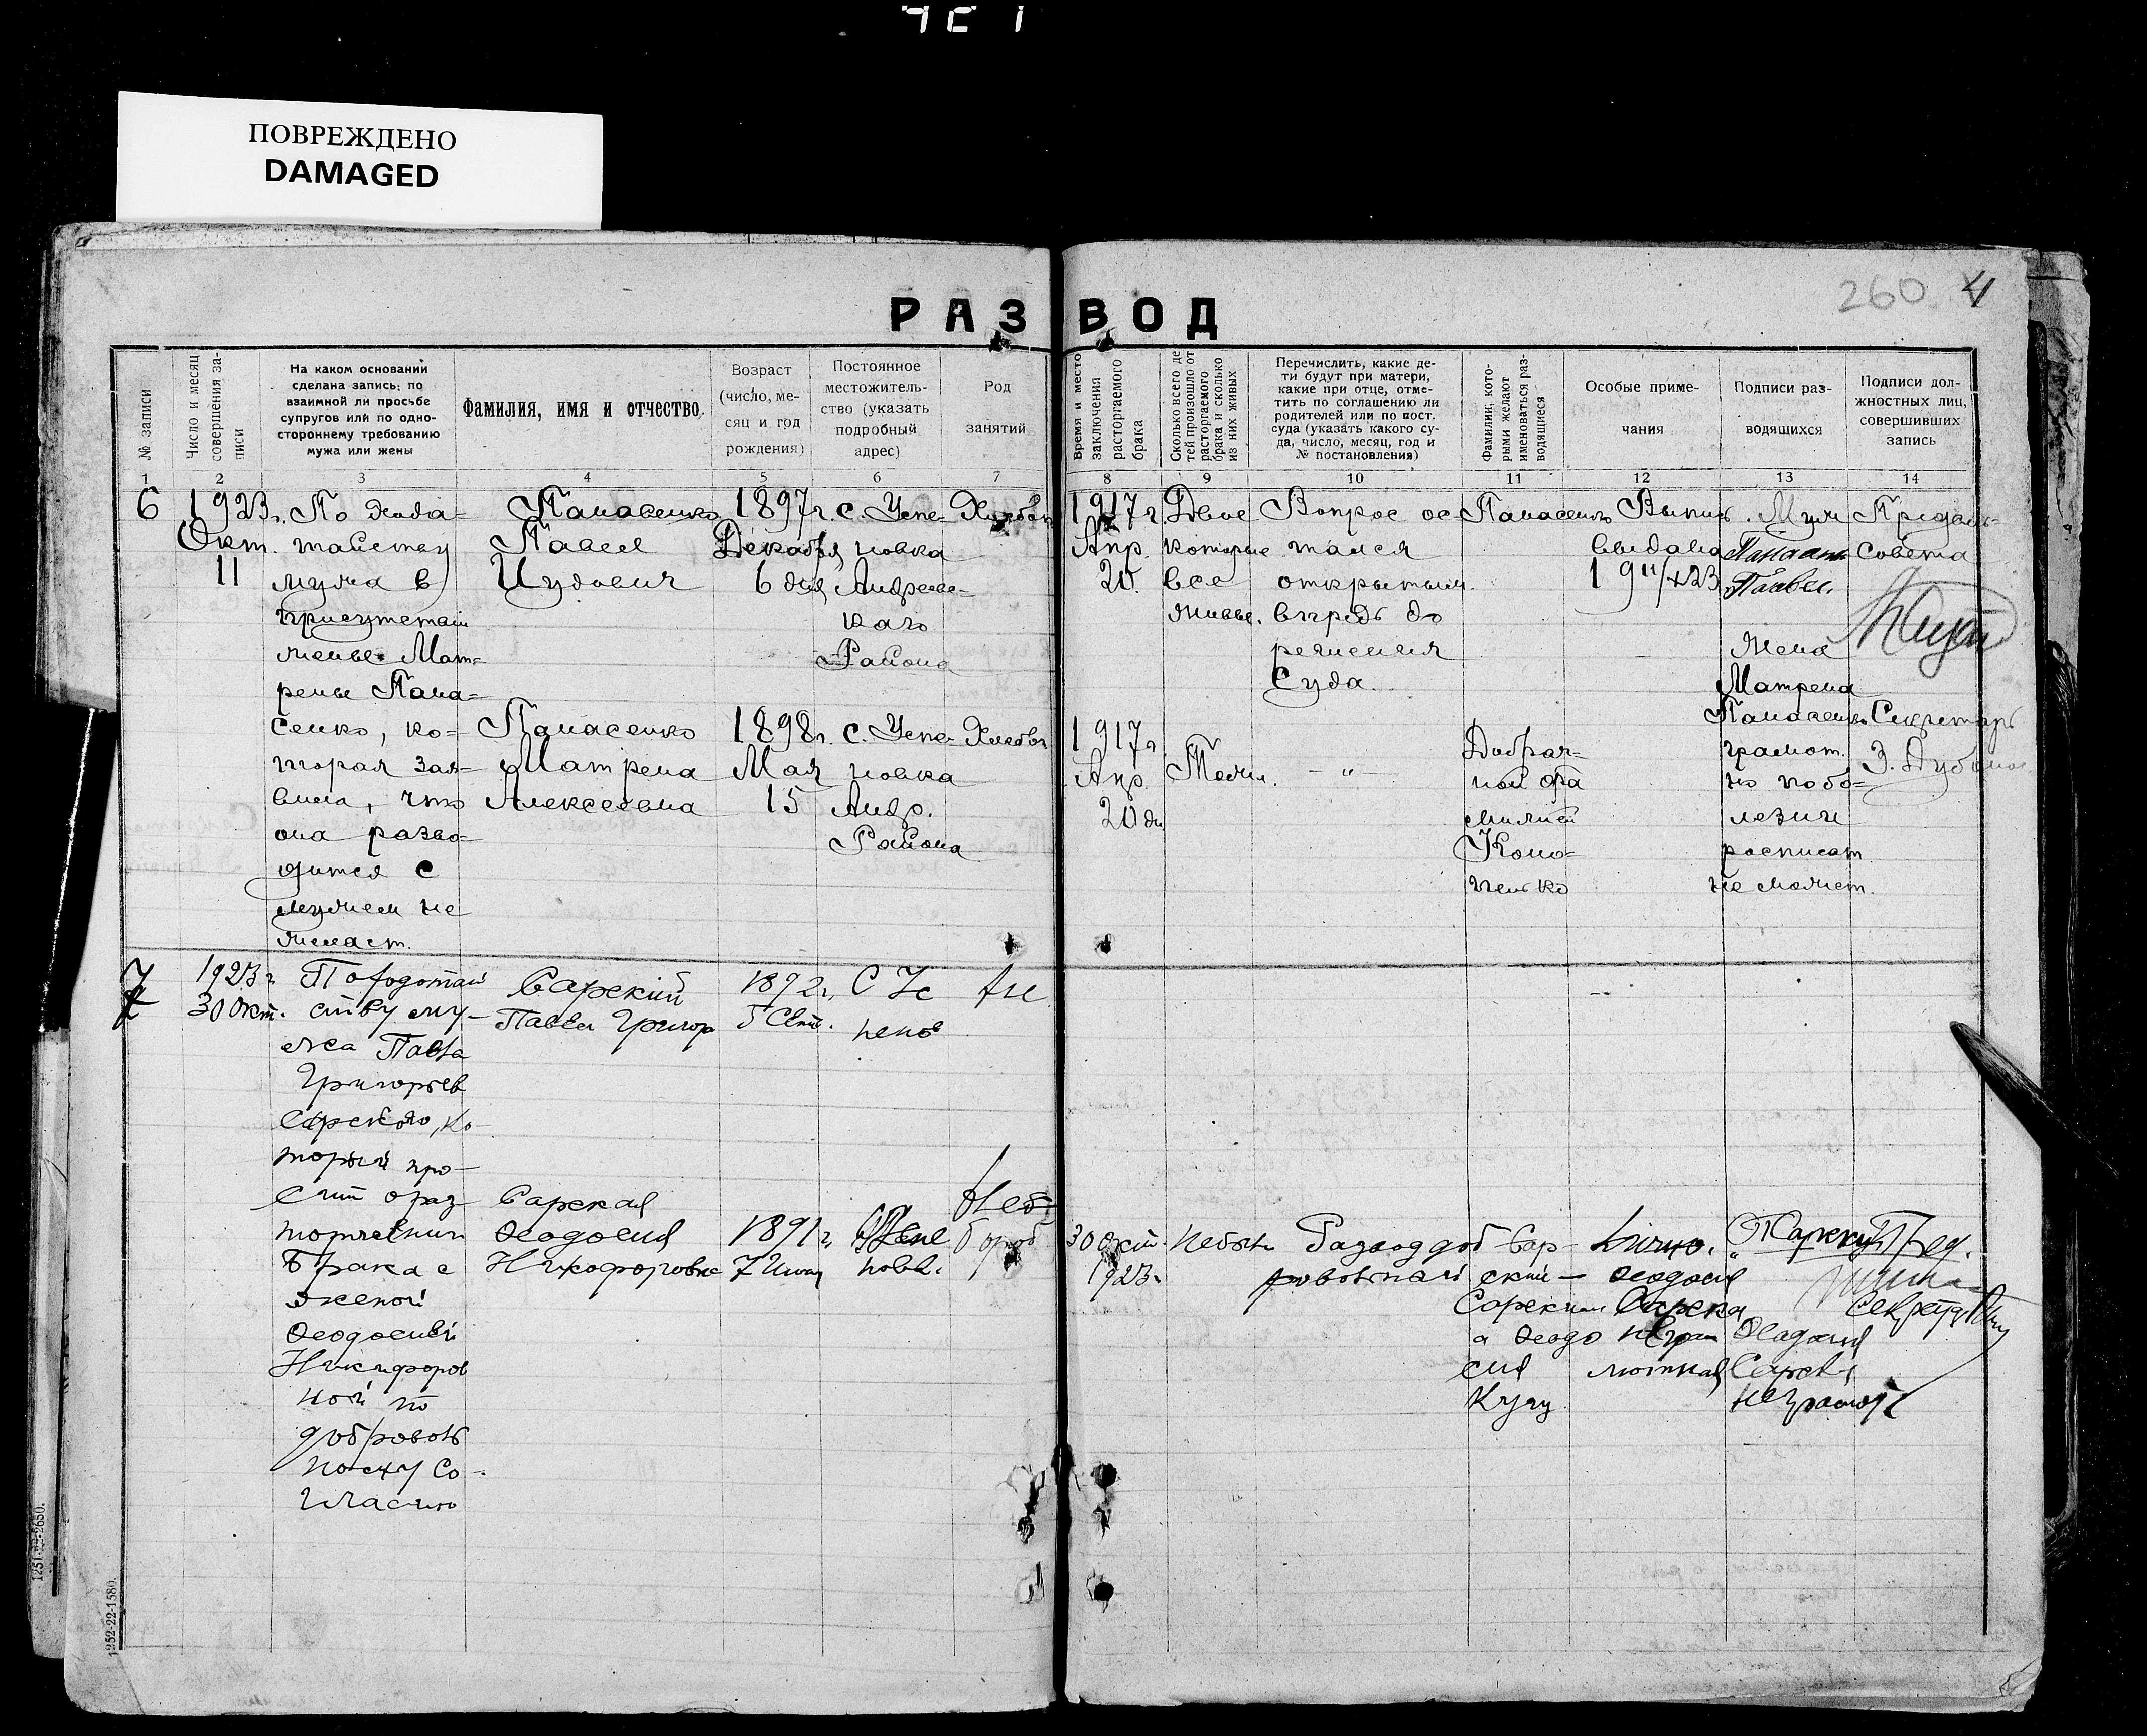 ПОВРЕЖДЕНО
DAMAGED
260 4
РАЗВОД
№ записи
Число и месяц
совершения за-
писи
На каком оснований
сделана запись: по
взаимной ли просьбе
супругов или по одно-
стороннему требованию
мужа или жены
Фамилия, имя и отчество.
Возраст
(число, ме-
сяц и год
рождения)
Постоянное
местожитель-
ство (указать
подробный
адрес)
Род
занятий
Время и место
заключения
расторгаемого
брака
Сколько всего де
тей произошло от
расторгаемого
брака и сколько
из них живых
Перечислить, какие де-
ти будут при матери,
какие при отце, отме-
тить по соглашению ли
родителей или по пост.
суда (указать какого су-
да, число, месяц, год и
№ постановления)
Фамилии, кото-
рыми желают
именоваться раз-
водящиеся
Особые приме-
чания
Подписи раз-
водящихся
Подписи дол-
жностных лиц,
совершивших
запись
1 2 3 4 5 6 7 8 9 10 11 12 13 14
6
1923г.
Окт.
11
По хода-
тайству
мужа в
присутствии
жены Мат-
рены Пана-
сенко, ко-
торая зая-
вила, что
она разво-
дится с
мужем не
желает.
Панасенко
Павел
Иудович
1897г.
Декабря
6 дня
с. Успе-
новка
Андреев-
каго
Района
1917г.
Апр.
20.
Двое
которые
все
живые.
Вопрос ос-
тался
открытым
впредь до
решения
Суда.
Панасенко
Выпись
выдана
19 11/X 23
Муж
Павел.
Жена
Матрена
Панасенко
грамот.
но по бо-
лезни
росписат
не может.
Совета
Секретарь
Панасенко
Матрена
Алексеевна
1898г.
Мая
15
с. Успе-
новка
Андр.
Района
1917г.
Апр.
20 дн
Тожи.
— " —
Добрач-
ной фа
милией
Коно-
пенько
7
7
1923г
30 Окт.
ству му-
жа Павла
Григорьев
Сарского, ко-
торый про-
сит о раз
торжении
Брака с
женой
Феодосией
Никифоров
ной по
доброволь
ному со-
гласию
Сарский
Павел Григор
1892г.
5 Сент.
С Ус
пенов
Сарская
Феодосия
Никофоровна
1891г.
30 Окт.
1923г
Небыли
Развод доб
ровольный
Сар-
ский —
Сарским
а Феодо
сия
Лично.
Феодосия
Сарска
неграм
мотная
Феодосия
неграмот
Пред.
Секретарь
1251-22-2650.
1252-22-1580.